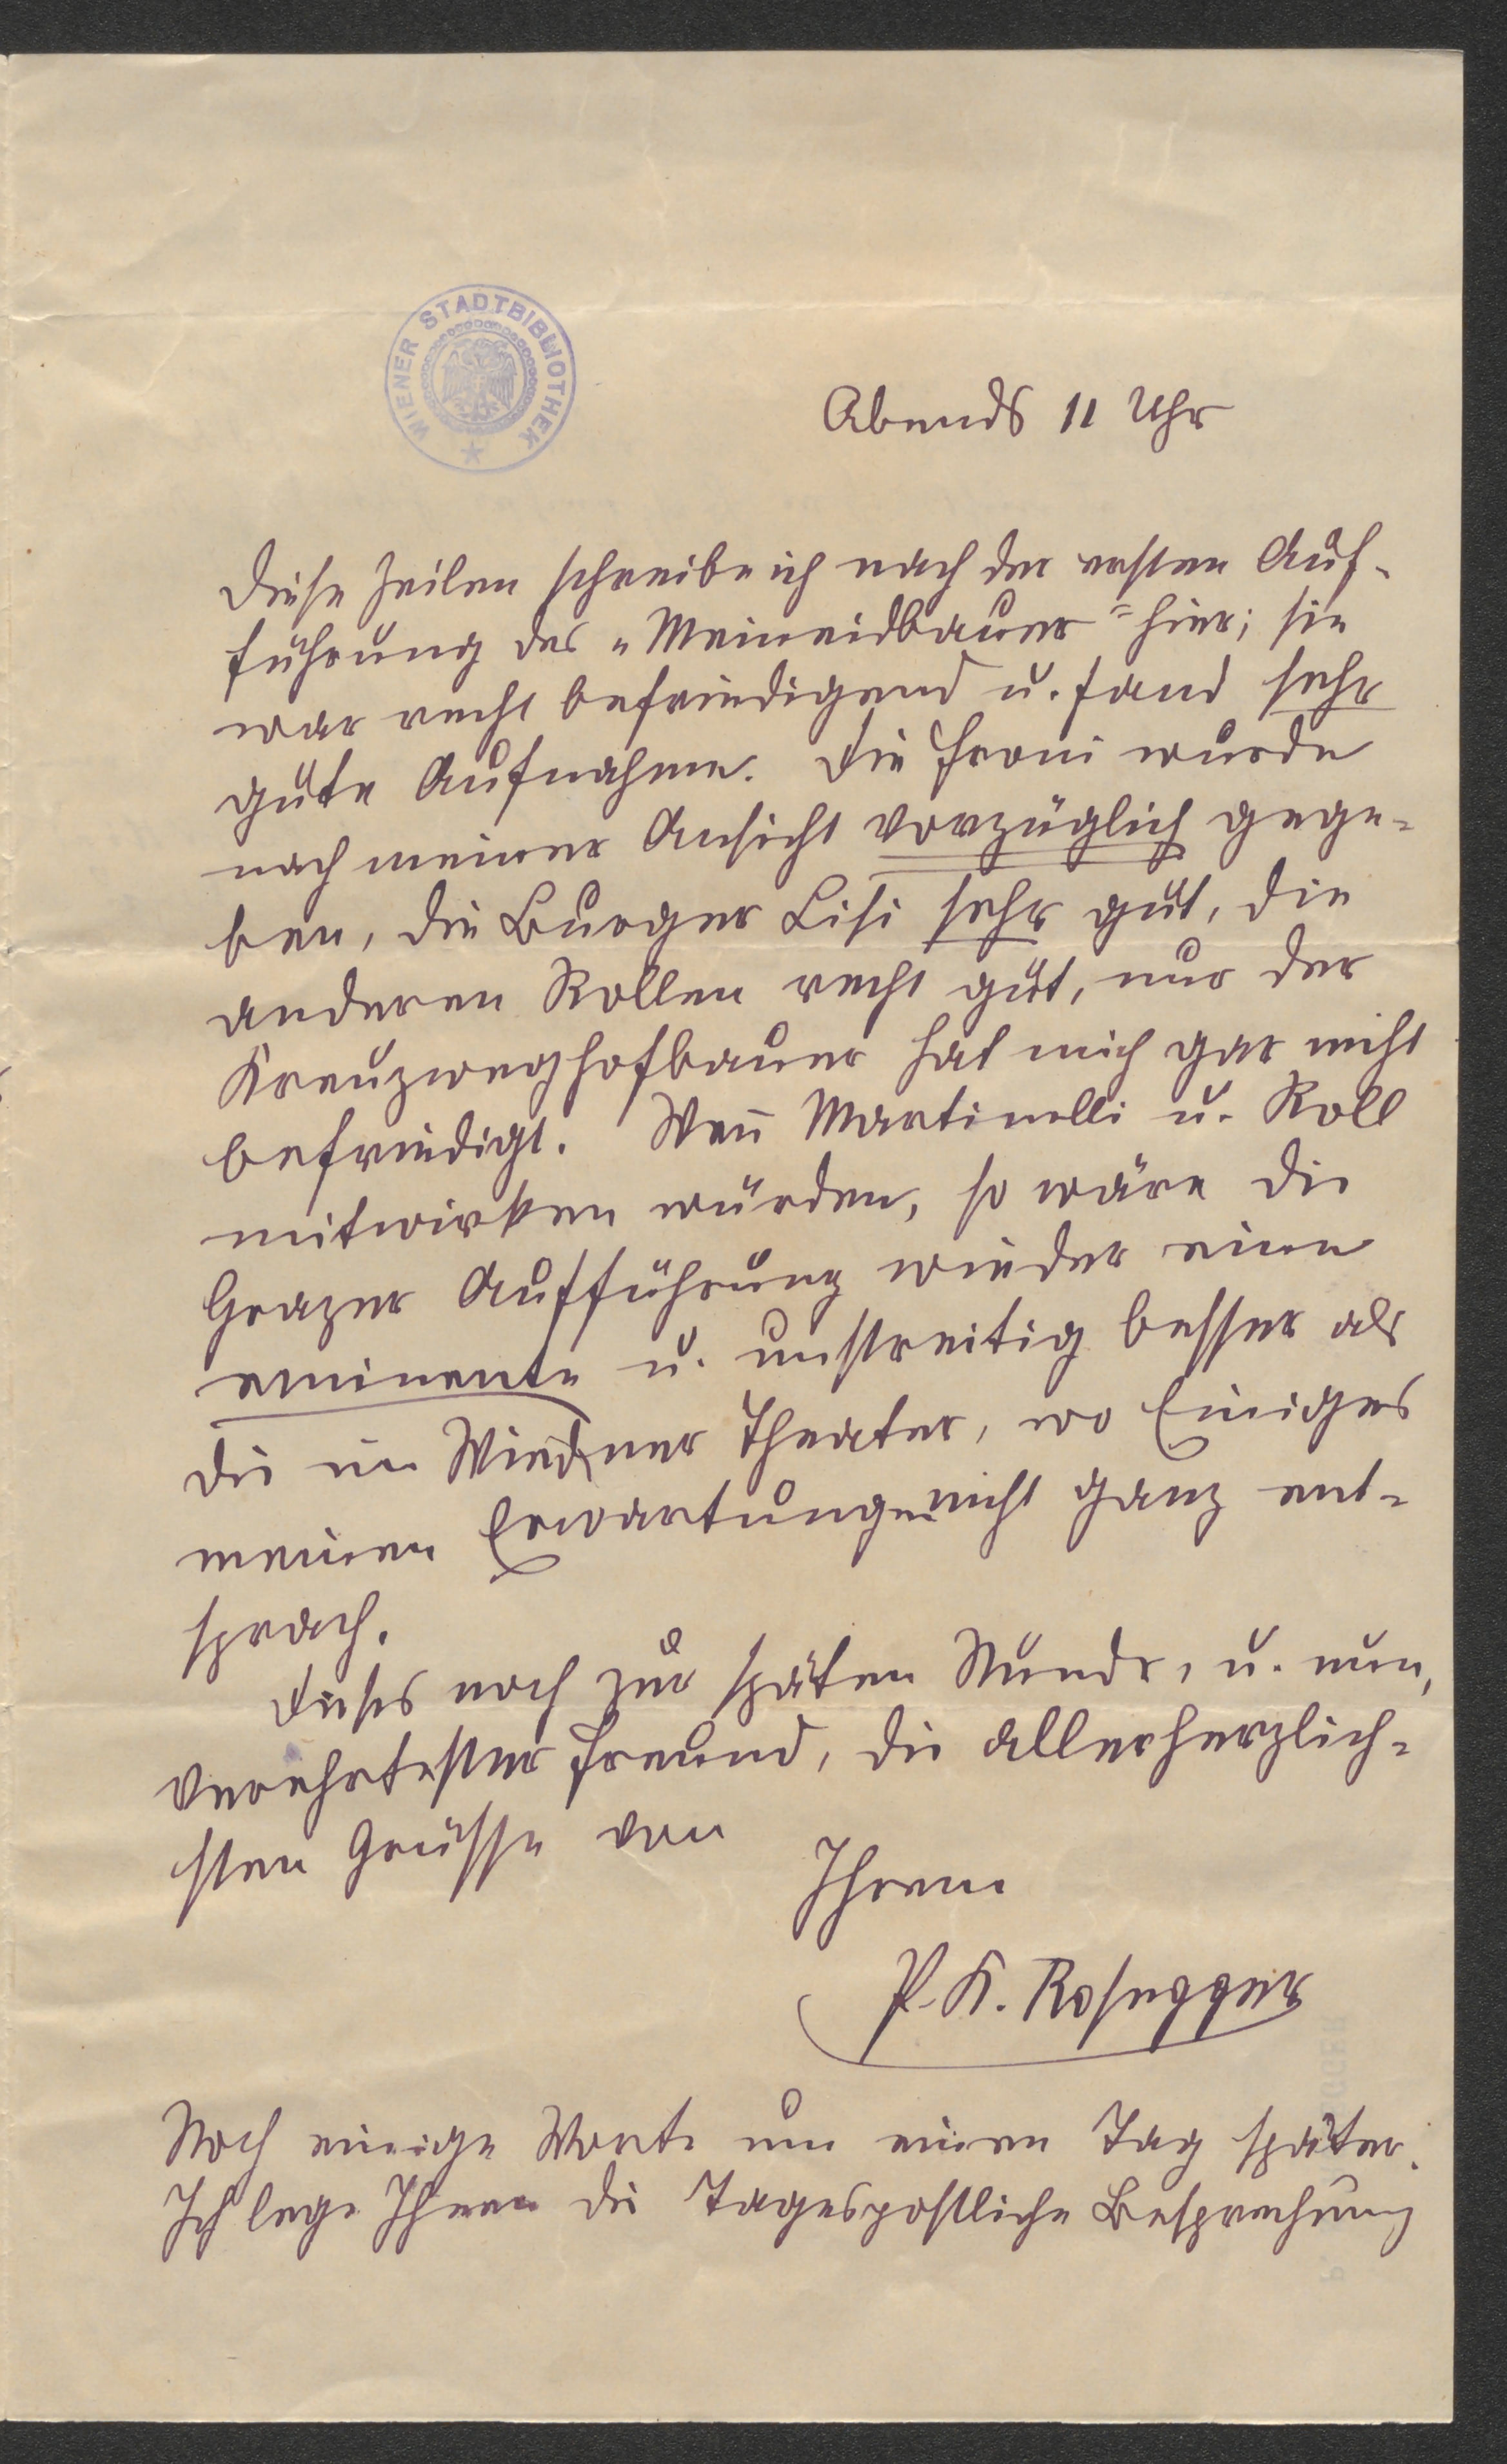 WIENER STADTBIBLIOTHEK
Abends 11 Uhr
Diese Zeilen schreibe ich nach der ersten Auf-
führung des „Meineidbauer“ hier; sie
war recht befriedigend u. fand sehr
gute Aufnahme. Die Froni wurde
nach meiner Ansicht vorzüglich gege-
ben, die Burger Lisi sehr gut, die
anderen Rollen recht gut, nur der
Kreuzweghofbauer hat mich gar nicht
befriedigt. Wen̄ Martinelli u. Roll
mitwirken würden, so wäre die
Grazer Aufführung wieder eine
eminente u. unstreitig besser als
die im Wiedner Theater, wo Einiges
meinen Erwartungen nicht ganz ent-
sprach.
Dieses noch zur späten Stunde, u. nun,
verehrtester Freund, die allerherzlich-
sten Grüsse von
Ihrem
P. K. Rosegger
Noch einige Worte um einen Tag später.
Ich lege Ihnen die Tagespostliche Besprechung